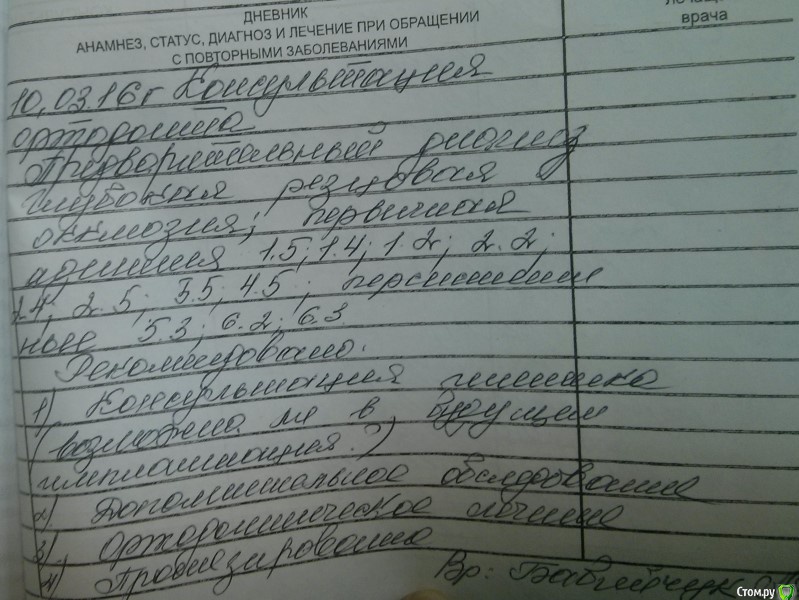 ДНЕВНИК
АНАМНЕЗ, СТАТУС, ДИАГНОЗ И ЛЕЧЕНИЕ ПРИ ОБРАЩЕНИИ
С ПОВТОРНЫМИ ЗАБОЛЕВАНИЯМИ
врача
10.03.16г Консультация
ортодонта
Предварительный диагноз
глубокая резцовая
окклюзия; первичная
адентия 1.5; 1.4; 1.2; 2.2;
2.4; 2.5; 3.5; 4.5; персистентн
ные 5.3; 6.2; 6.3
Рекомендовано:
1) Консультация генетика
(возможна ли в будущем
имплантация?)
2) Дополнительное обследование
3) Ортодонтическое лечение
4) Протезирование
Вр:
Стом.ру